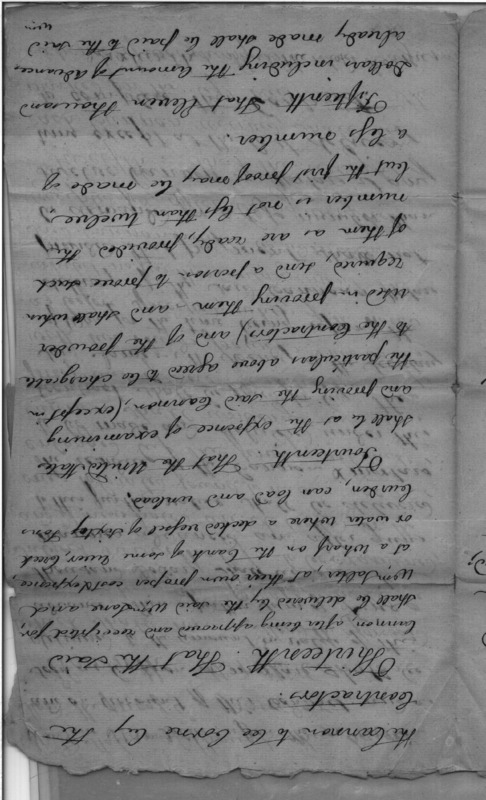 the Cannon to bee borne by the
Contractors.
Thirteenth. That the said
Cannon after being approved and receipted for,
shall be delivered by the said Wm Lane and
Wm Salter, at their own proper cost & expence
at a wharf on the bank of some river, creek
or water where a decked vessel of sixty tons
burden, can load and unload.
Fourteenth That the United States
shall be at the expence of examining
and proving the said Cannon, (except in
the particulars above agreed to be chargeable
to the Contractors) and of the powder
used in proving them and shall when
required, send a person to prove such
of them as are ready, provided the
number is not less than twelve,
but the first proof may be made of
a less number.
Fifteenth That Eleven Thousand
Dollars including the amount of advances
already made shall be paid to the said
Wm